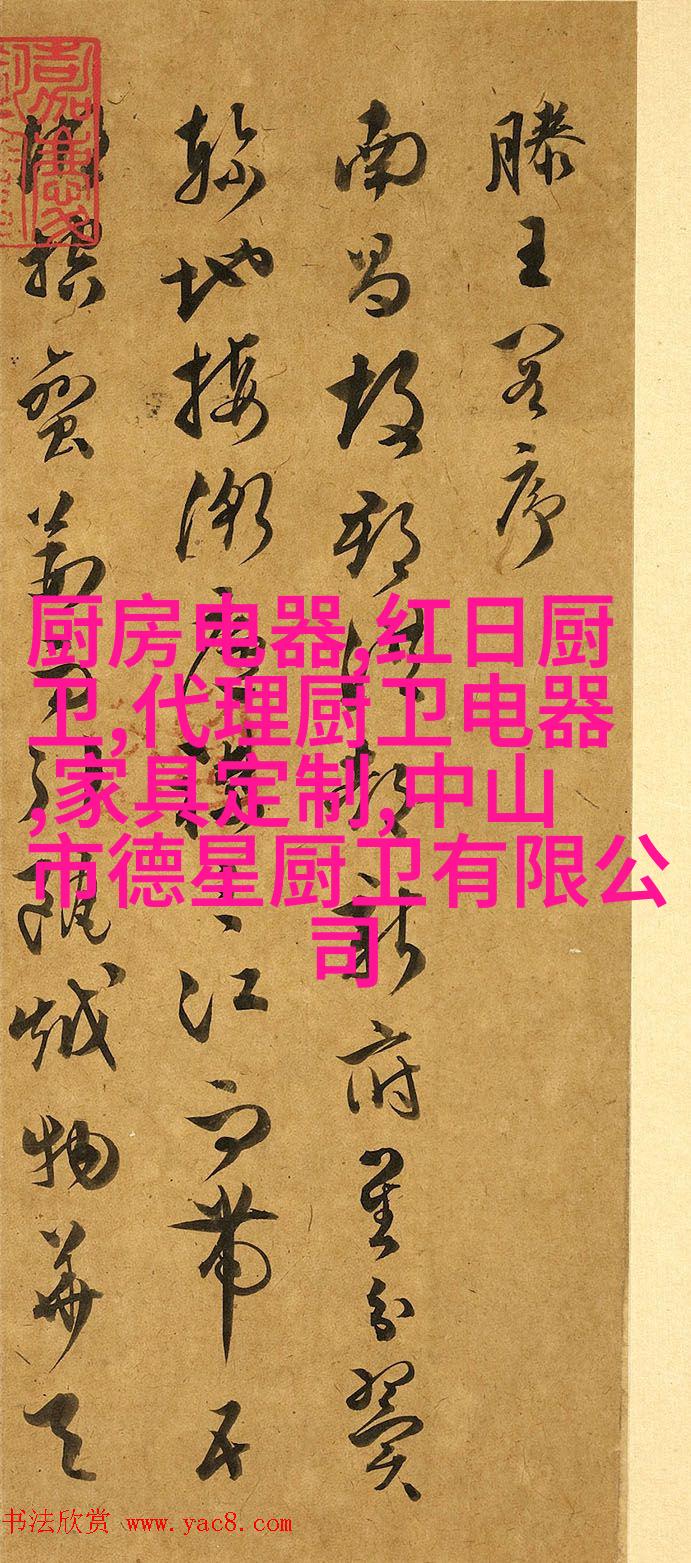 滕王閣序
南昌故郡洪都新府星分翼
軫地接衡廬襟三江而帶五
湖控蠻荊而引甌越物華天
厨房电器,红日厨
卫,代理厨卫电器
,家具定制,中山
市德星厨卫有限公
司
书法欣赏 www.yac8.com